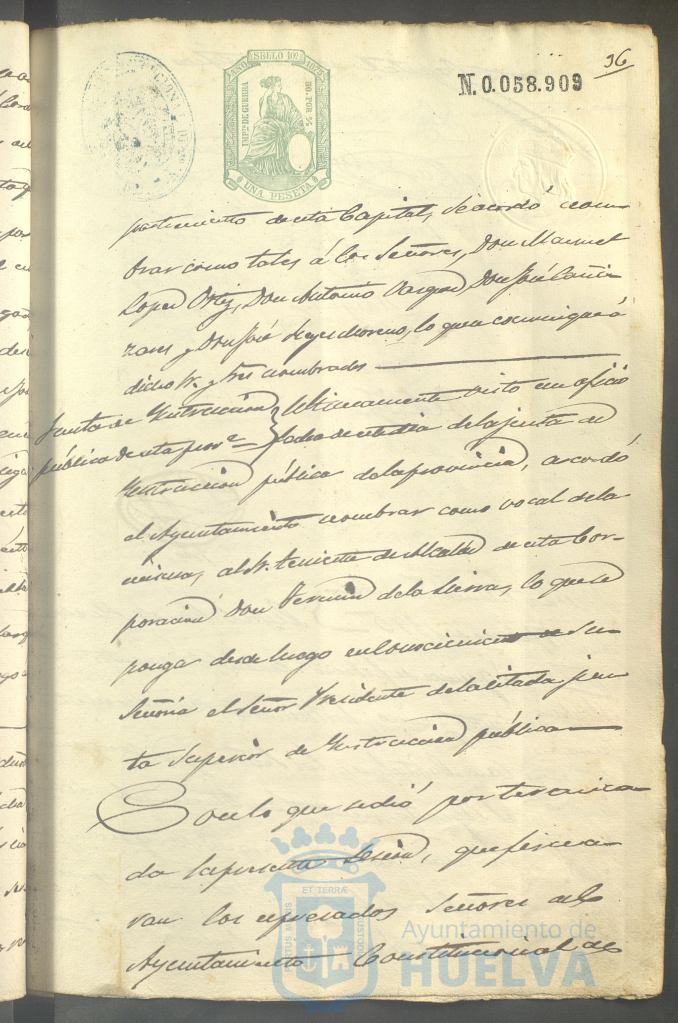 96
N. 0.058.909
AÑO SELLO 10º 1879
IMPto DE GUERRA
50. POR %
UNA PESETA
partimiento de esta Capital, se acordó nom-
brar como tales á los Señores, Don Manuel
Lopez Ortiz, Don Antonio Vazquez, Don José Cañi-
zares y Don José Reyes Moreno, lo que se comunique á
dicho Sr. y tres nombrados
Junta de Instruccion
pública de esta prova
Ultimamente visto un oficio
fecha de este dia de la junta de
Instruccion pública de la provincia, acordó
el Ayuntamiento nombrar como vocal de la
misma, al Sr. teniente de Alcalde de esta Cor-
poracion Don Fermin de la Sierra, lo que se
ponga desde luego en conocimiento de Su
Señoria el Señor Presidente de la citada jun-
ta Superior de Instruccion pública
Con lo que se dió por termina-
da la presente Sesion, que firma-
ran los espresados Señores del
Ayuntamiento Constitucional de
ET TERRÆ
PORTUS MARIS
CUSTODIA
Ayuntamiento de
HUELVA